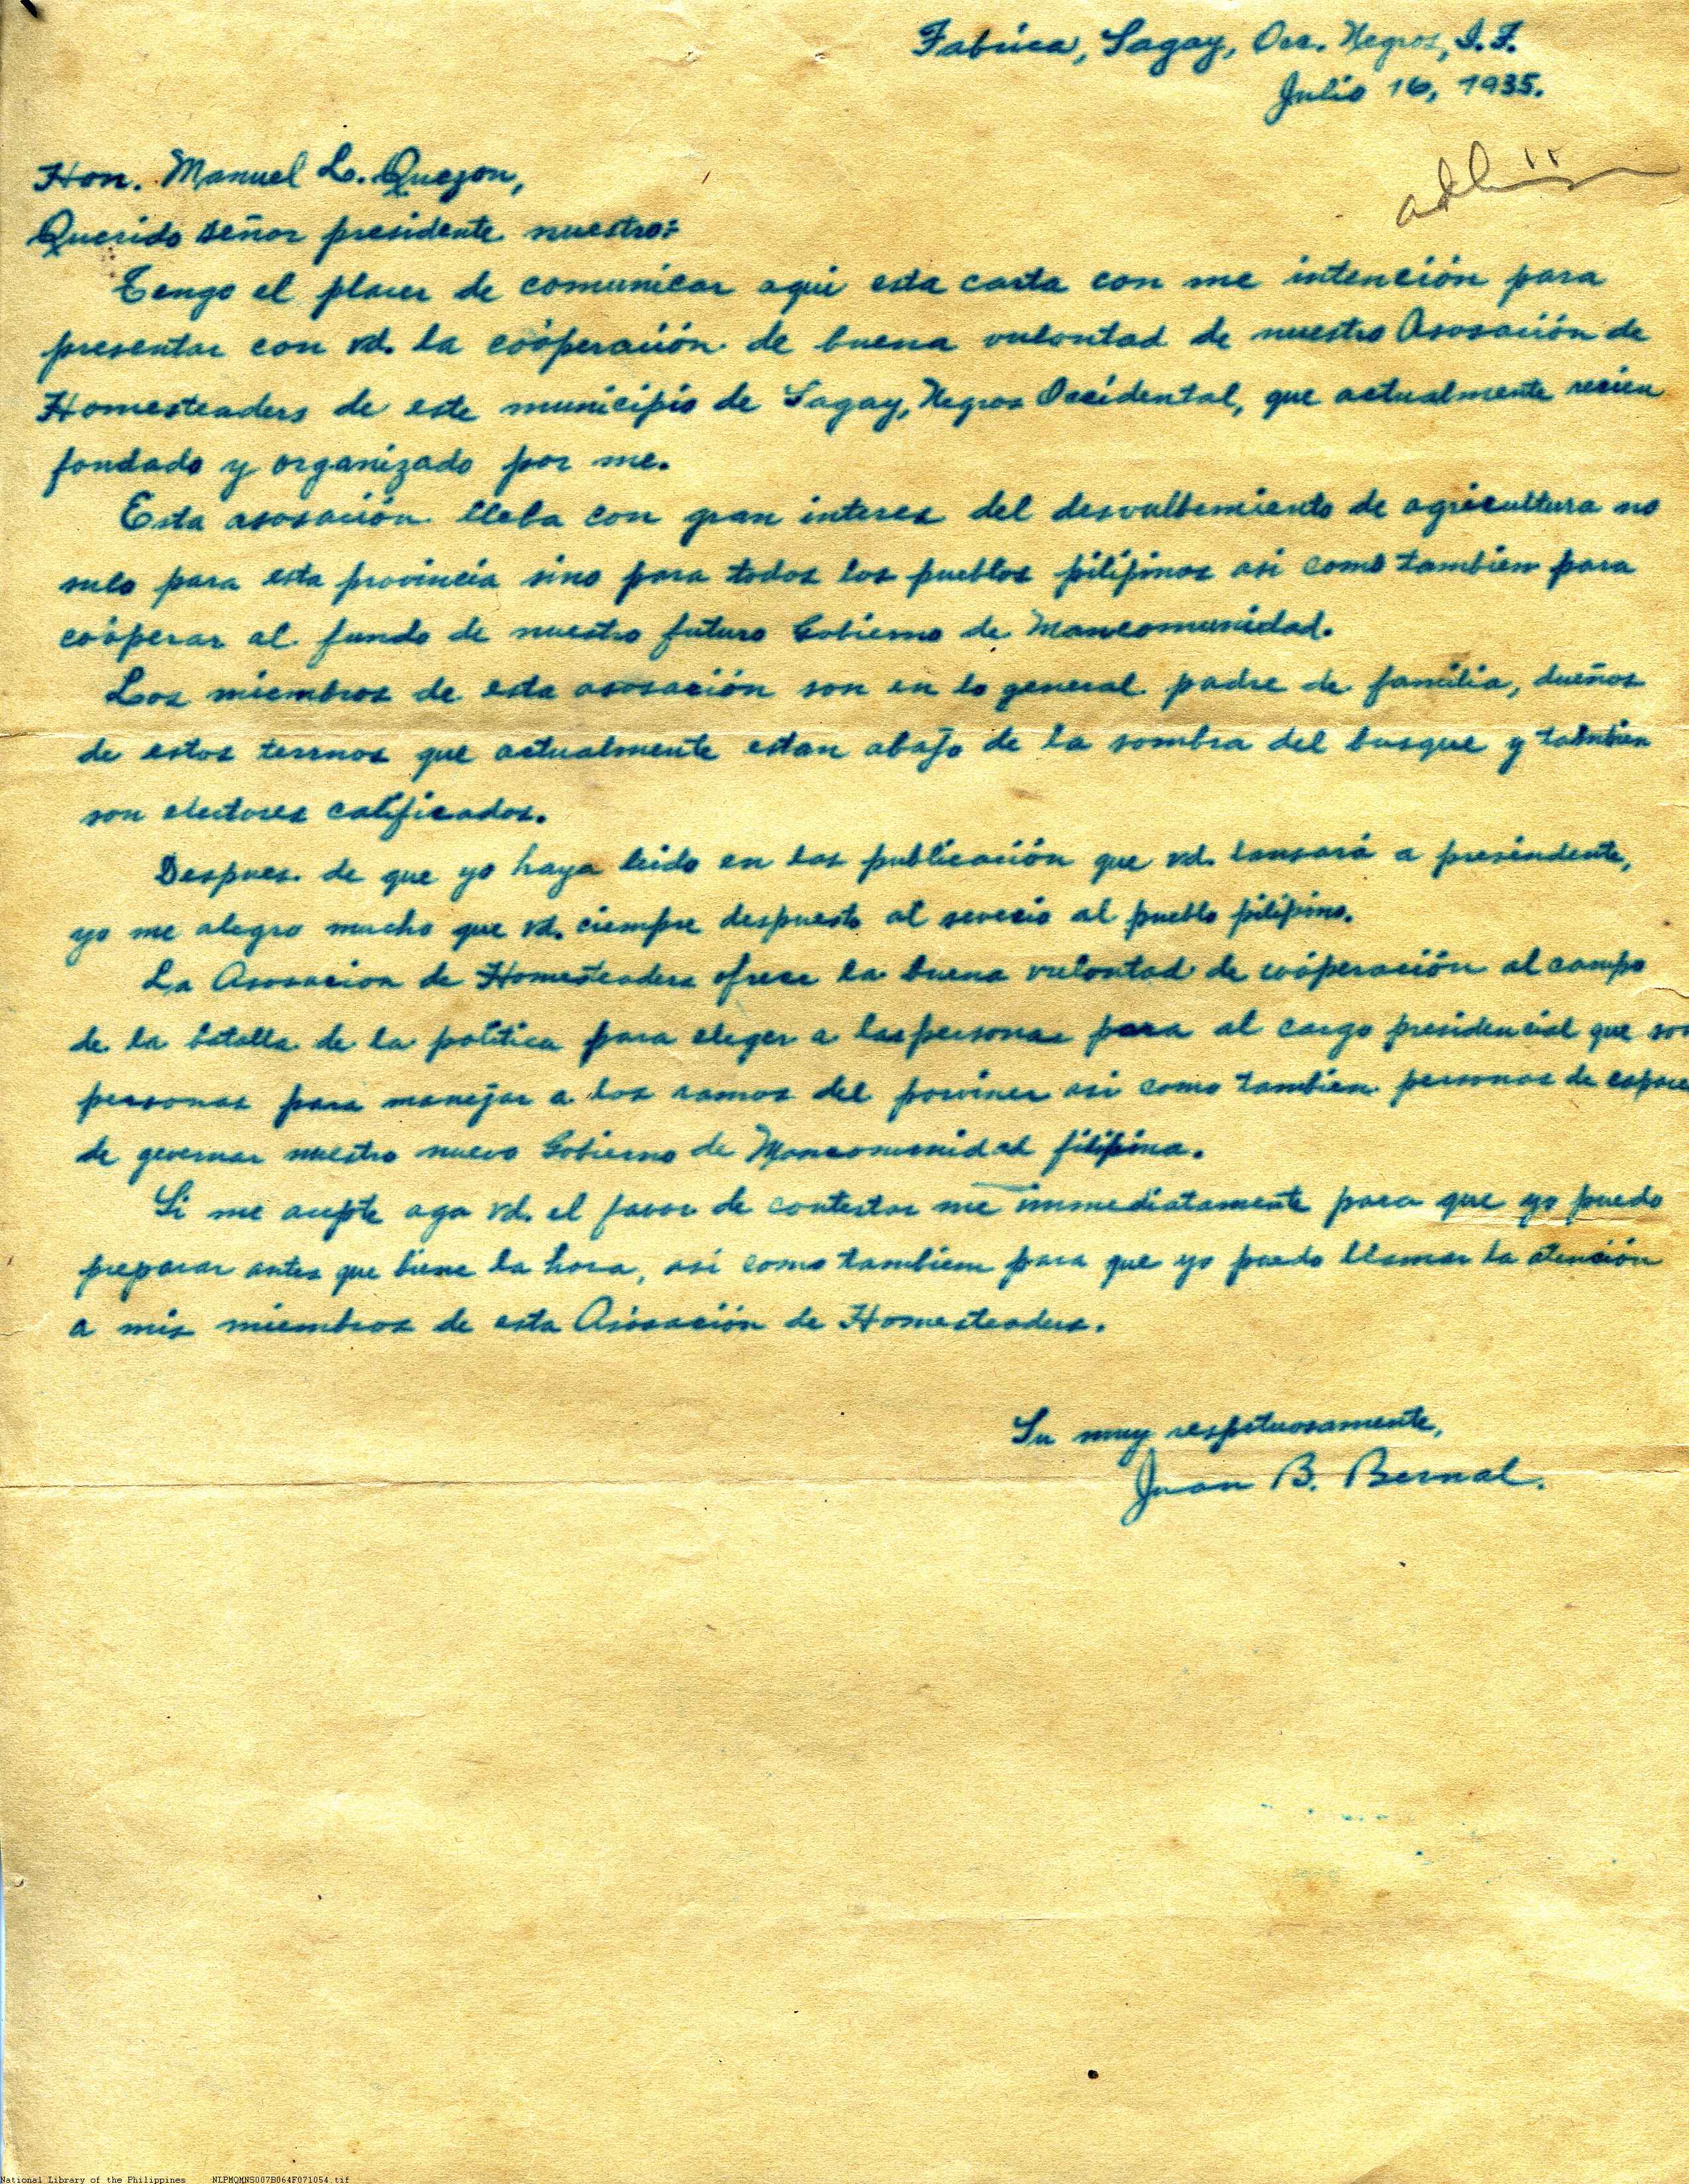 Fabrica, Sagay, Occ. Negros, I. F.
Julio 16, 1935.
Hon. Manuel L. Quezon,
Querido señor presidente nuestro:
Tengo el placer de comunicar aqui esta carta con me intención para
presentar con vd. la coóperación de buena vulontad de nuestro Asosación de
Homesteaders de este municipio de Sagay, Negros Occidental, que actualmente recien
fondado y organizado por me.
Esta asosación lleba con gran interes del desvulbemiento de agricultura no
sulo para esta provincia sino para todos los pueblos pilipinos asi como tambien para
coóperar al fundo de nuestro futuro Gobierno de Mancomunidad.
Los miembros de esta asosación son en lo general padre de familia, dueños
de estos terrnos que actualmente estan abajo de la sombra del busque y tambien
son electores calificados.
Despues de que yo haya leido en las publicación que vd. lansará a presindente,
yo me alegro mucho que vd. ciempre despuesto al sevecio al pueblo pilipino.
La Asosacion de Homesteaders ofrece la buena vulontad de coóperación al campo
de la batalla de la politica para eleger a las personas para al cargo presidencial que son
personas para manejar a los ramos del porviner asi como tambien personas de
de gevernar nuestro nuevo Gobierno de Mancomunidad filipina.
Si me acepte aga vd. el favor de contestar me immediatamente para que yo puedo
preparar antes que biene la hora, asi como tambiem para que yo puedo llamar la atención
a mis miembros de esta Asosación de Homesteaders.
Su muy respetuosamente,
Juan B. Bernal.
National Library of the Philippines NLPMQMNS007B064F071054.tif